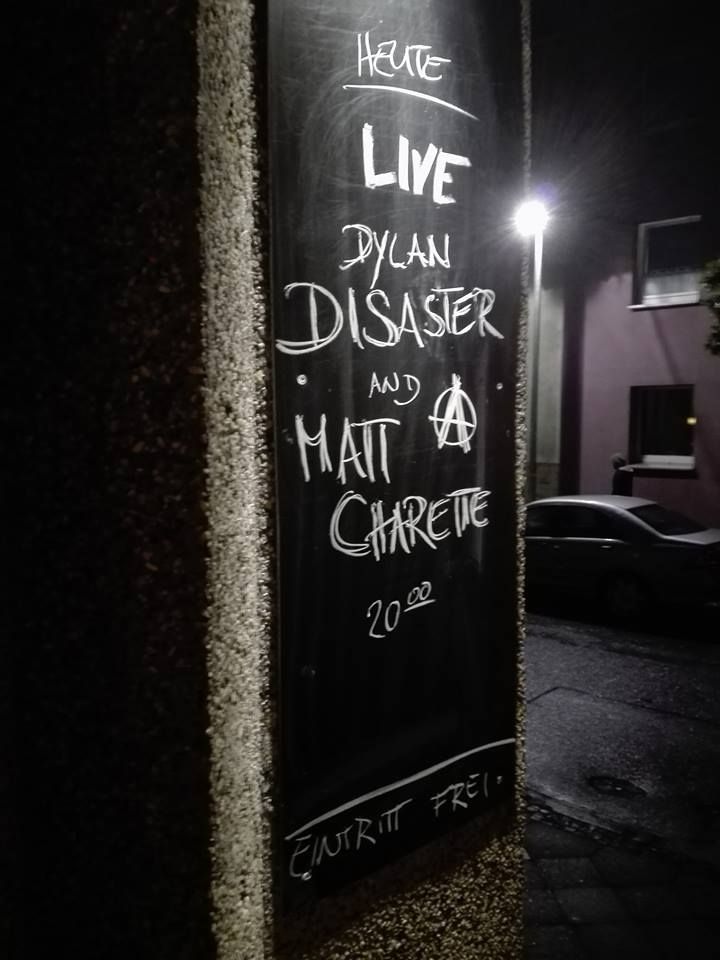 HEUTE
LIVE
DYLAN
DISASTER
AND
MATT
CHARETTE
20⁰⁰
EINTRITT FREI.